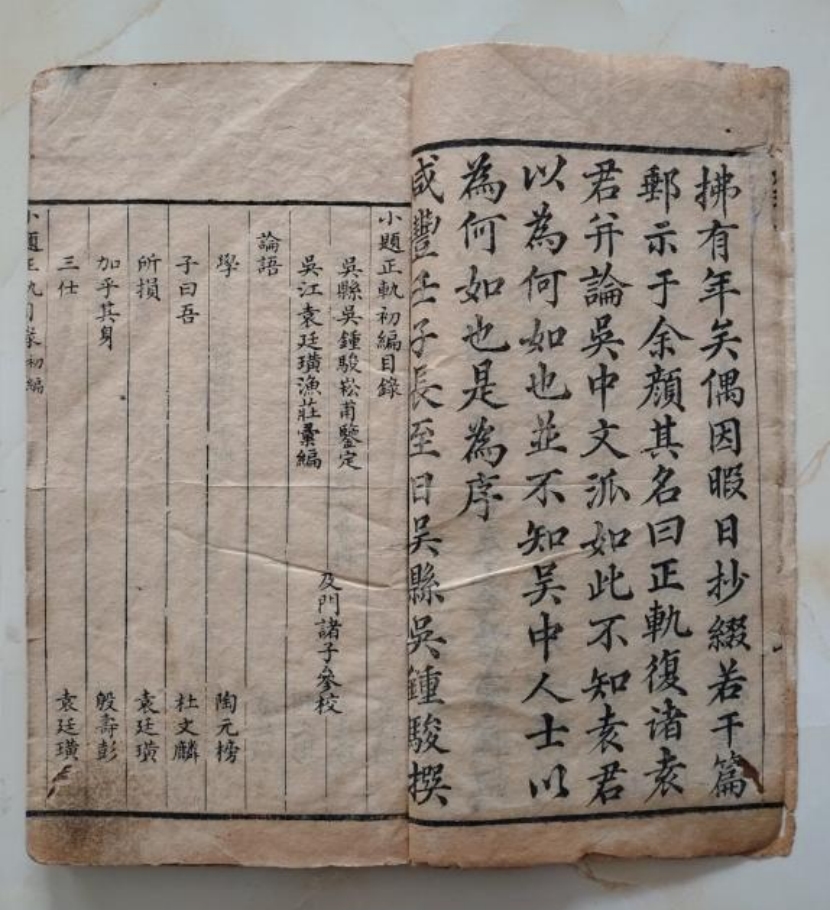 拂有年矣偶因暇日抄綴若干篇
郵示于余顏其名曰正軌復諸袁
君幷論吳中文派如此不知袁君
以為何如也並不知吳中人士以
為何如也是為序
咸豐壬子長至日吳縣吳鍾駿撰
小題正軌初編目錄
吳縣吳鍾駿崧甫鑒定
吳江袁廷璜漁莊彙編
及門諸子參校
論語
學 陶元榜
子曰吾 杜文麟
所損 袁廷璜
加乎其身 殷壽彭
三仕 袁廷璜
小題正軌目錄初編